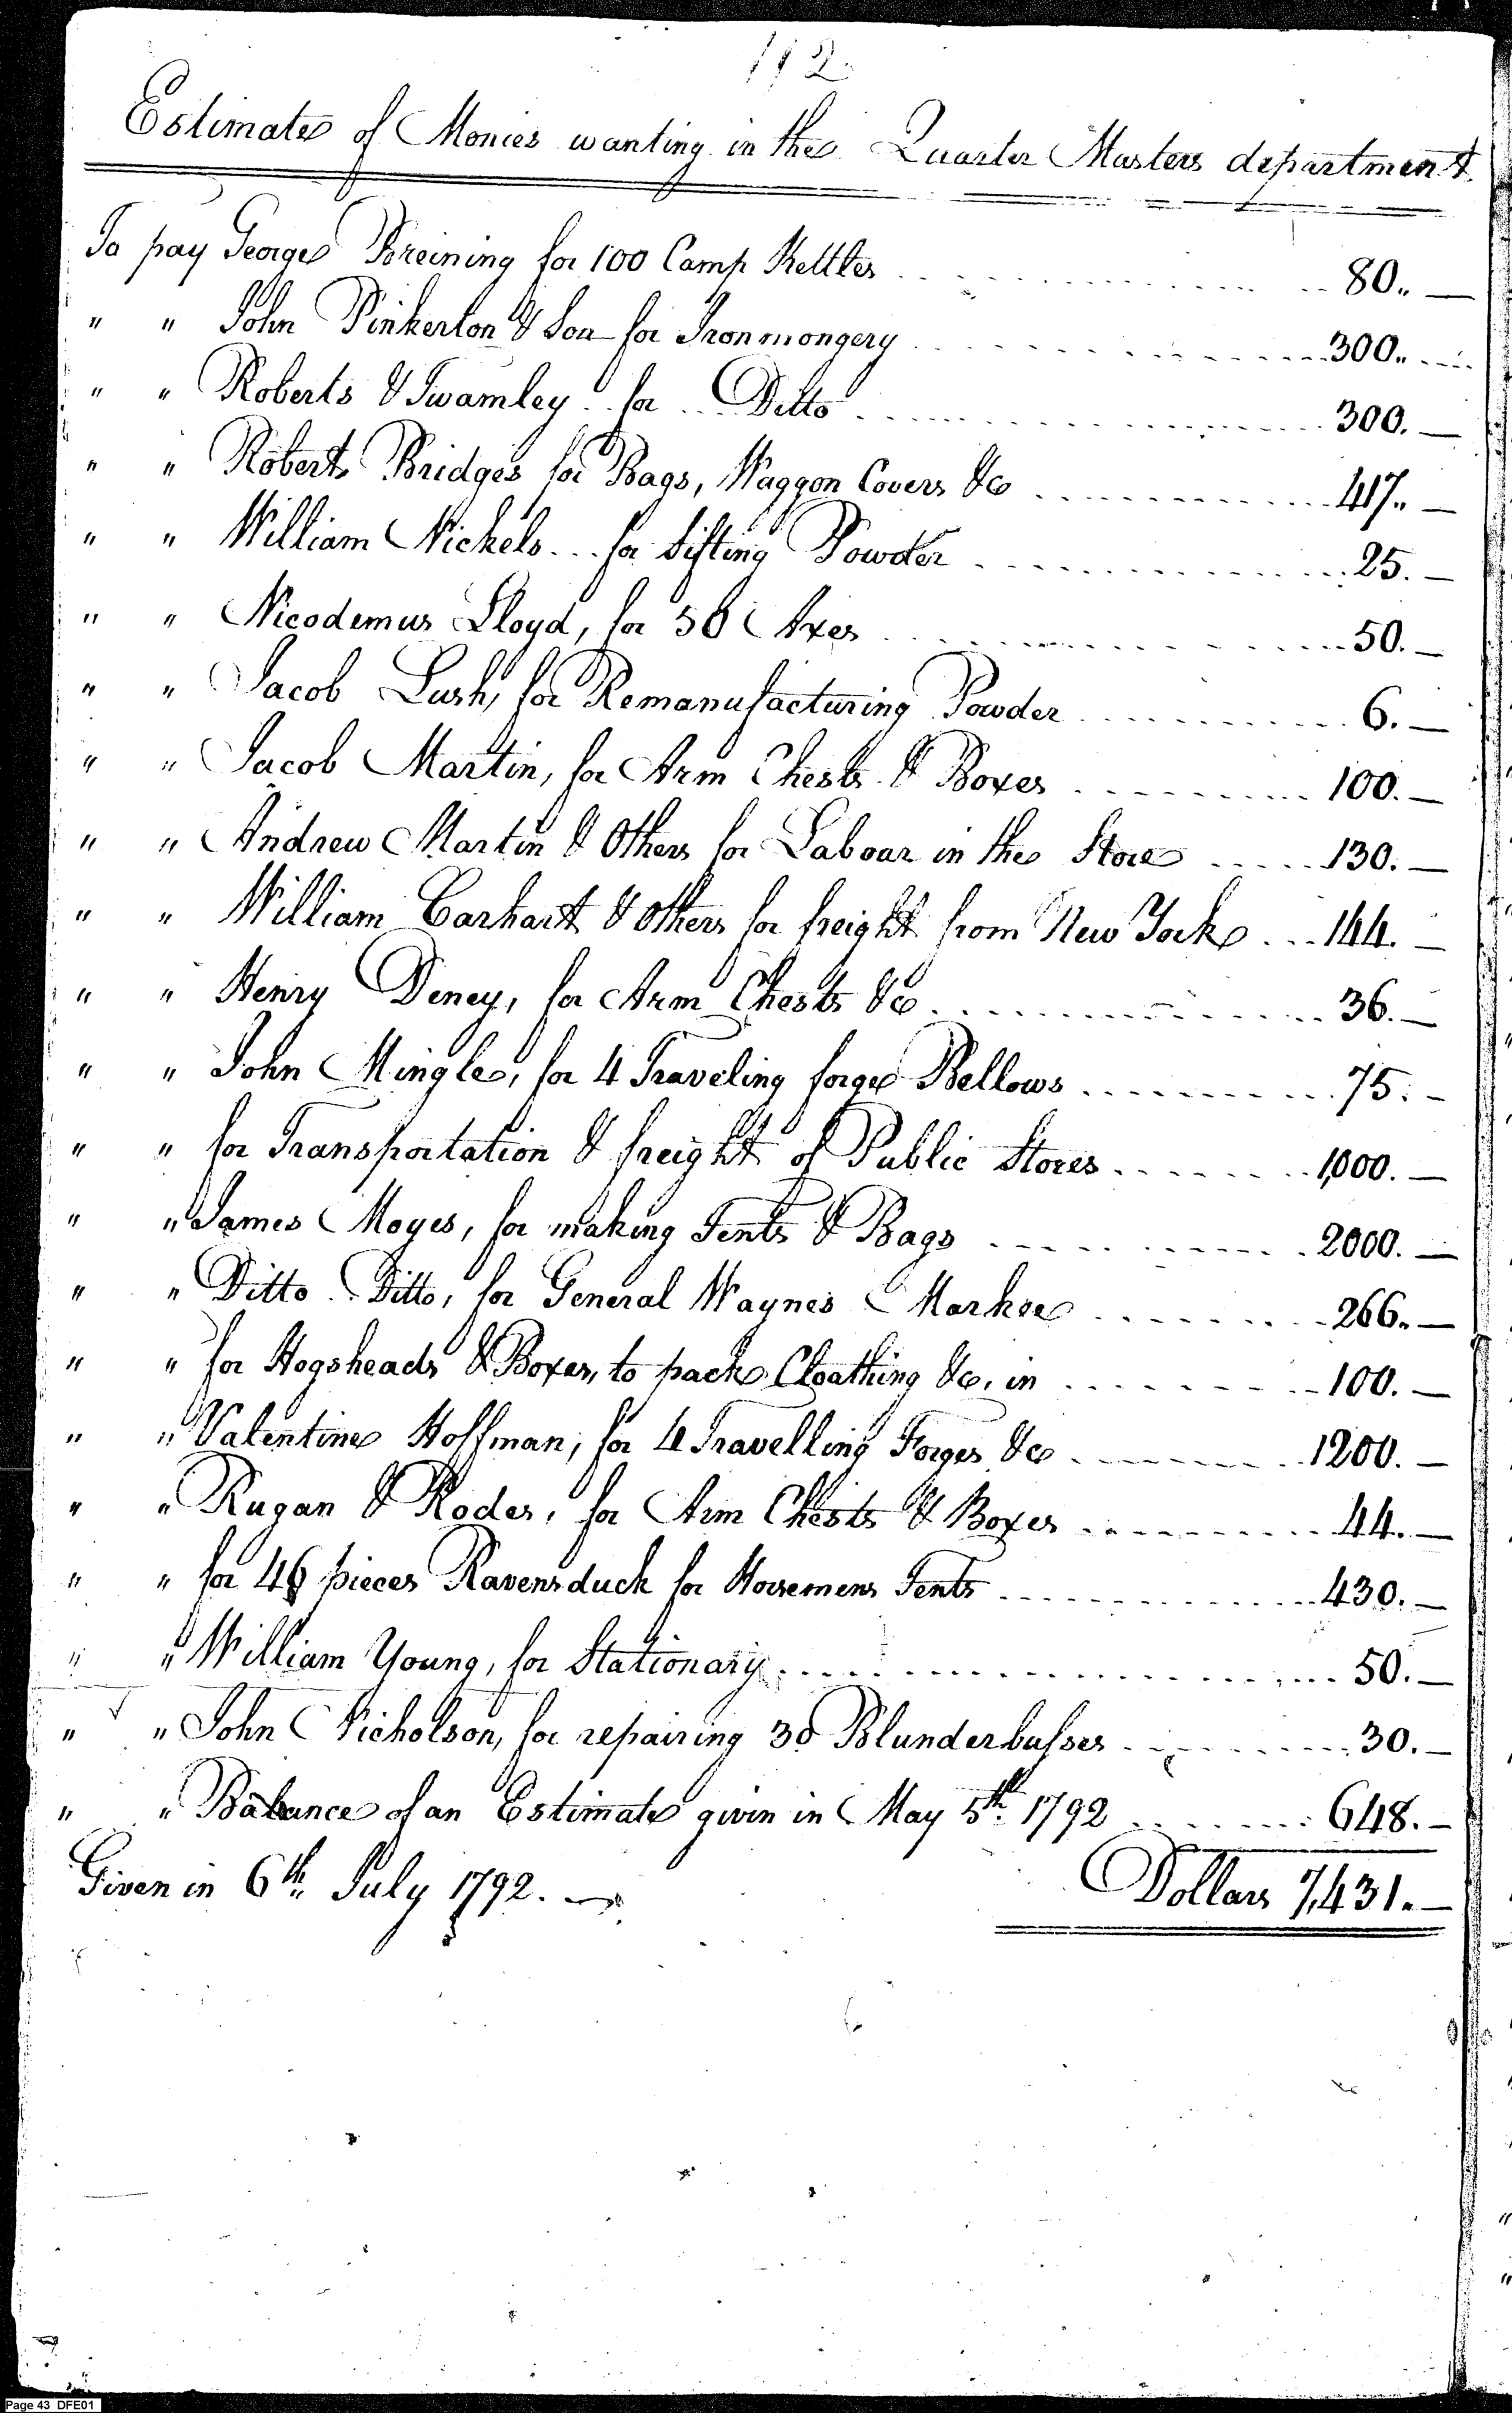 112.
Estimate of Monies wanting in the Quarter Masters department.
To pay George Breining for 100 Camp Kettles 80.. —
" " John Pinkerton & Son for Ironmongery 300..
" " Roberts & Twamley for Ditto 300. —
" " Robert Bridges for Bags, Waggon Covers &c 417.. —
" " William Nickels for Sifting Powder 25. —
" " Nicodemus Lloyd, for 50 Axes 50. —
" " Jacob Lush, for Remanufacturing Powder 6. —
" " Jacob Martin, for Arm Chests & Boxes 100. —
" " Andrew Martin & Others for Labour in the Store 130. —
" " William Carhart & Others for freight from New York 144. —
" " Henry Deney, for Arm Chests &c 36. —
" " John Mingle, for 4 Traveling forge Bellows 75. -
" " for Transportation & freight of Public Stores 1,000. —
" " James Moyes, for making Tents & Bags 2000. —
" " Ditto Ditto, for General Waynes Markee 266.. —
" " for Hogsheads & Boxes, to pack Cloathing &c, in 100. —
" " Valentine Hoffman, for 4 Travelling Forges &c 1200. —
" " Rugan & Rodes, for Arm Chests & Boxes 44. —
" " for 46 pieces Ravensduck for Horsemens Tents 430. —
" " William Young, for Stationary 50. —
" " John Nicholson, for repairing 30 Blunderbusses 30. —
" " Balance of an Estimate given in May 5th 1792 648. —
Given in 6th July 1792. — Dollars 7,431. —
Page 43 DFE01